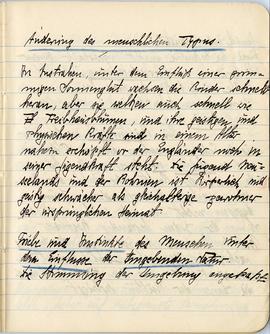 Änderung des menschlichen Typus.
In Australien, unter dem Einfluß einer
Sonnenglut wachsen die Kinder schnell
heran, aber sie welken auch schnell wie
Treibhausblumen, und ihre geistigen und
physischen Kräfte sind in einem Alter
nahezu erschöpft wo der Engländer noch in
seiner Jugendkraft steht. Die Jugend Neu-
seelands und der Kolonien ist körperlich und
geistig schwächer als gleichaltrige
der ursprünglichen Heimat
Triebe und Instinkte des Menschen unter
dem Einflusse der umgebenden Natur
die Stimmung der Umgebung angepaßt